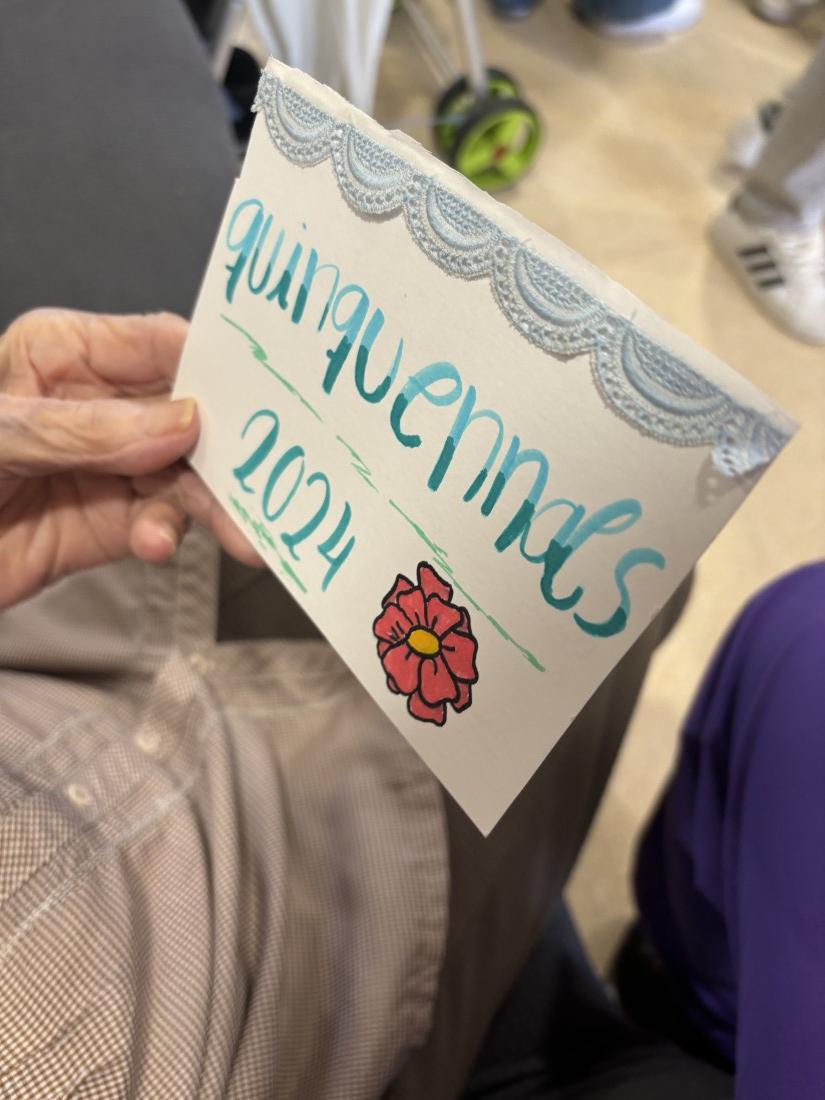 quinquennals
2024